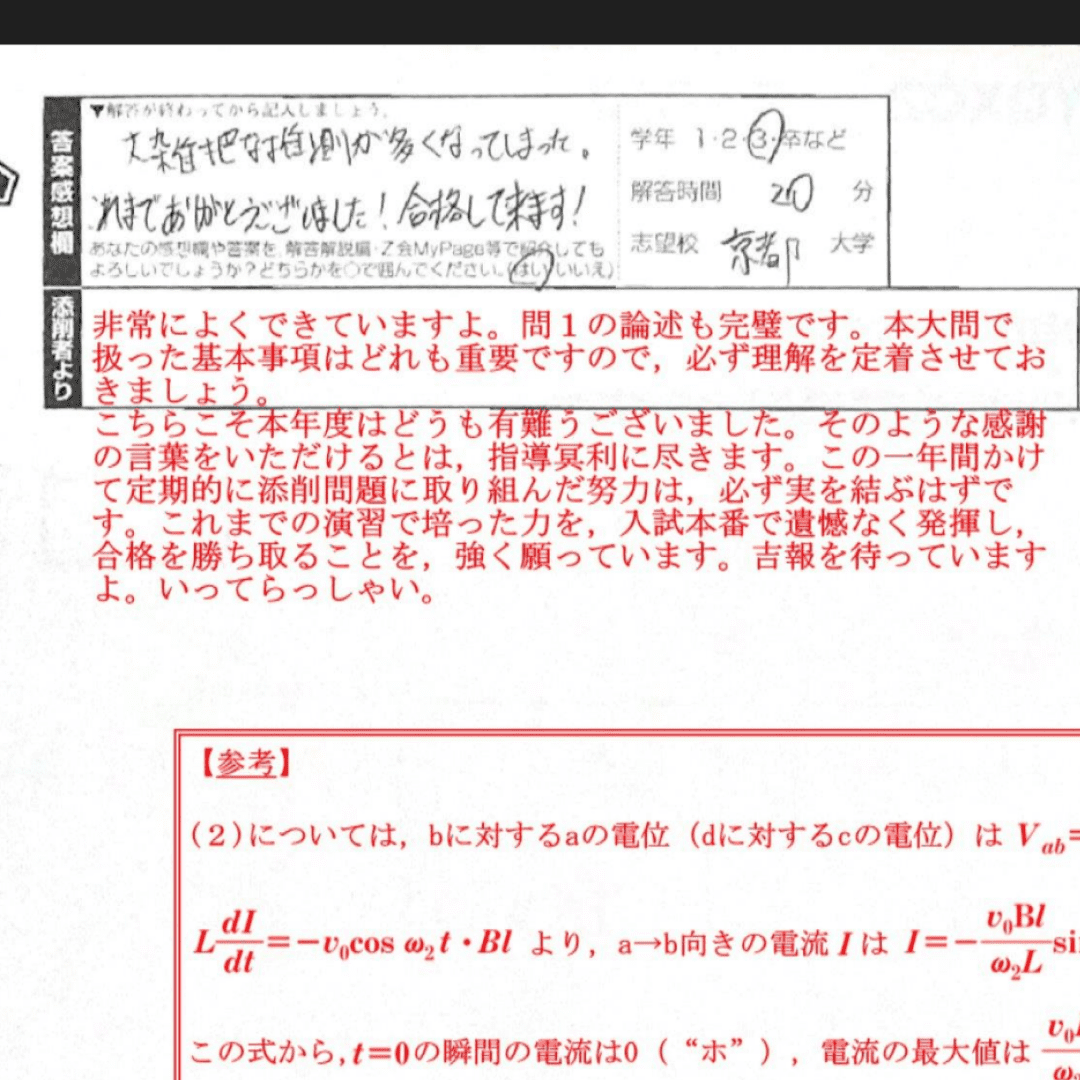 答案感想欄
▼解答が終わってから記入しましょう。
大雑把な推測が多くなってしまった。
これまでありがとうございました！合格して来ます！
あなたの感想欄や答案を、解答解説編・Z会MyPage等で紹介しても
よろしいでしょうか？どちらかを○で囲んでください。(はい/いいえ)
学年 1・2・3・卒など
解答時間 20 分
志望校 京都 大学
添削者より
非常によくできていますよ。問１の論述も完璧です。本大問で
扱った基本事項はどれも重要ですので，必ず理解を定着させてお
きましょう。
こちらこそ本年度はどうも有難うございました。そのような感謝
の言葉をいただけるとは，指導冥利に尽きます。この一年間かけ
て定期的に添削問題に取り組んだ努力は，必ず実を結ぶはずで
す。これまでの演習で培った力を，入試本番で遺憾なく発揮し，
合格を勝ち取ることを，強く願っています。吉報を待っています
よ。いってらっしゃい。
【参考】
(２)については，bに対するaの電位（dに対するcの電位）は V_ab=
L dI/dt=−v₀cos ω₂t・Bl より，a→b向きの電流 I は I=−v₀Bl/ω₂L si
この式から,t=0の瞬間の電流は0（“ホ”），電流の最大値は v₀